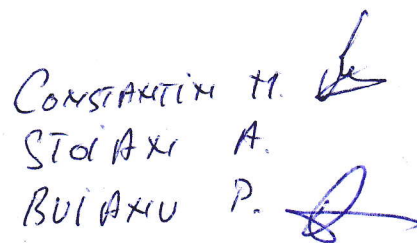 CONSTANTIN M.
STOIAN A.
BUIANU P.